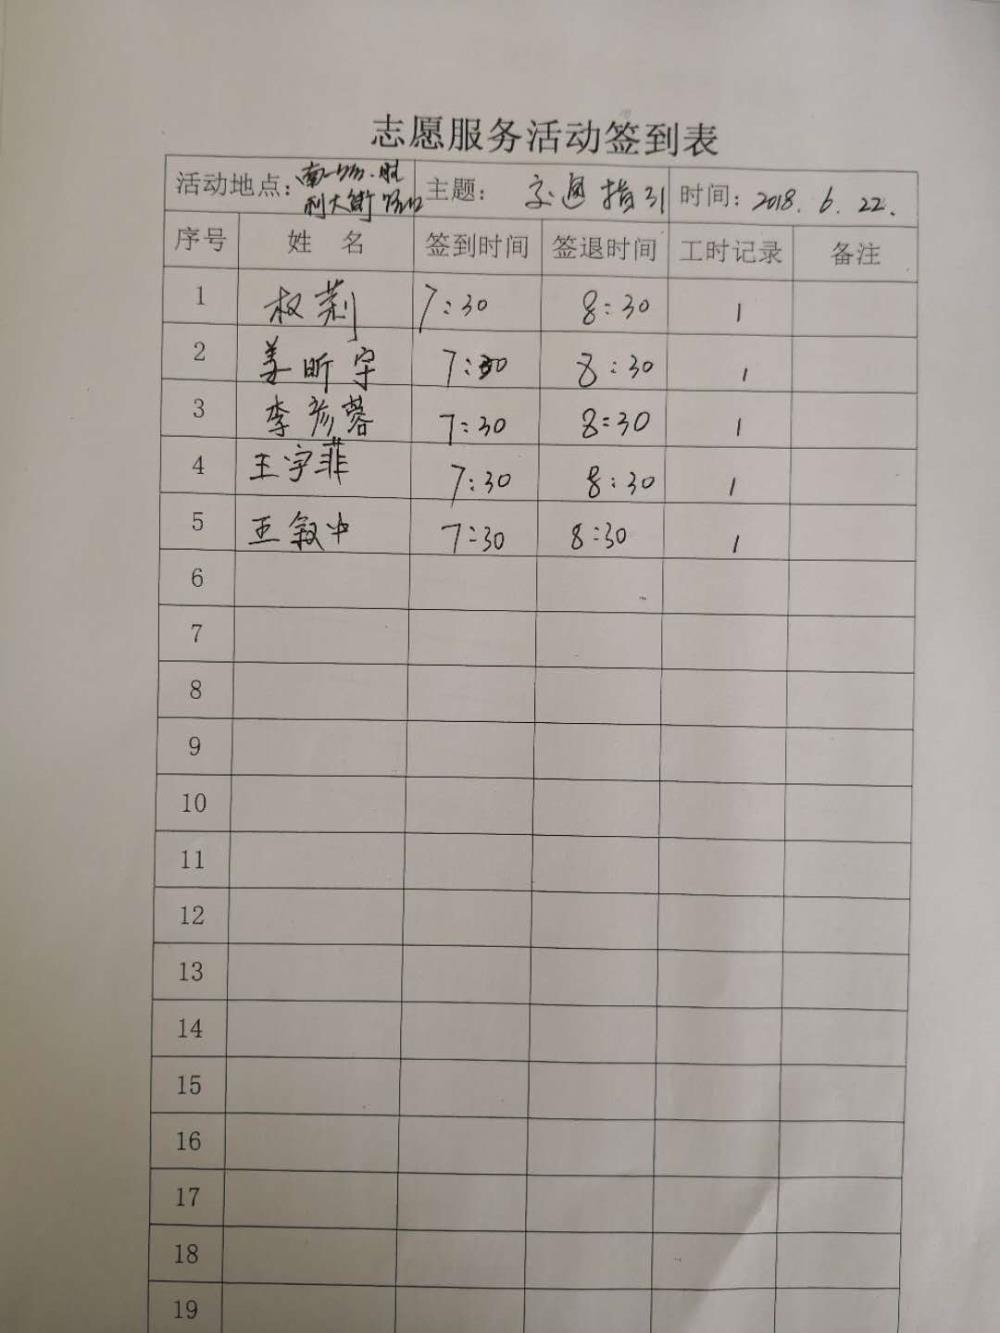 志愿服务活动签到表
活动地点: 南一环·胜利大街路口 主题: 交通指引 时间: 2018. 6. 22.
序号 姓 名 签到时间 签退时间 工时记录 备注
1 权荆 7:30 8:30 1
2 姜昕宇 7:30 8:30 1
3 李彦蓉 7:30 8:30 1
4 王宇菲 7:30 8:30 1
5 王叙中 7:30 8:30 1
6
7
8
9
10
11
12
13
14
15
16
17
18
19